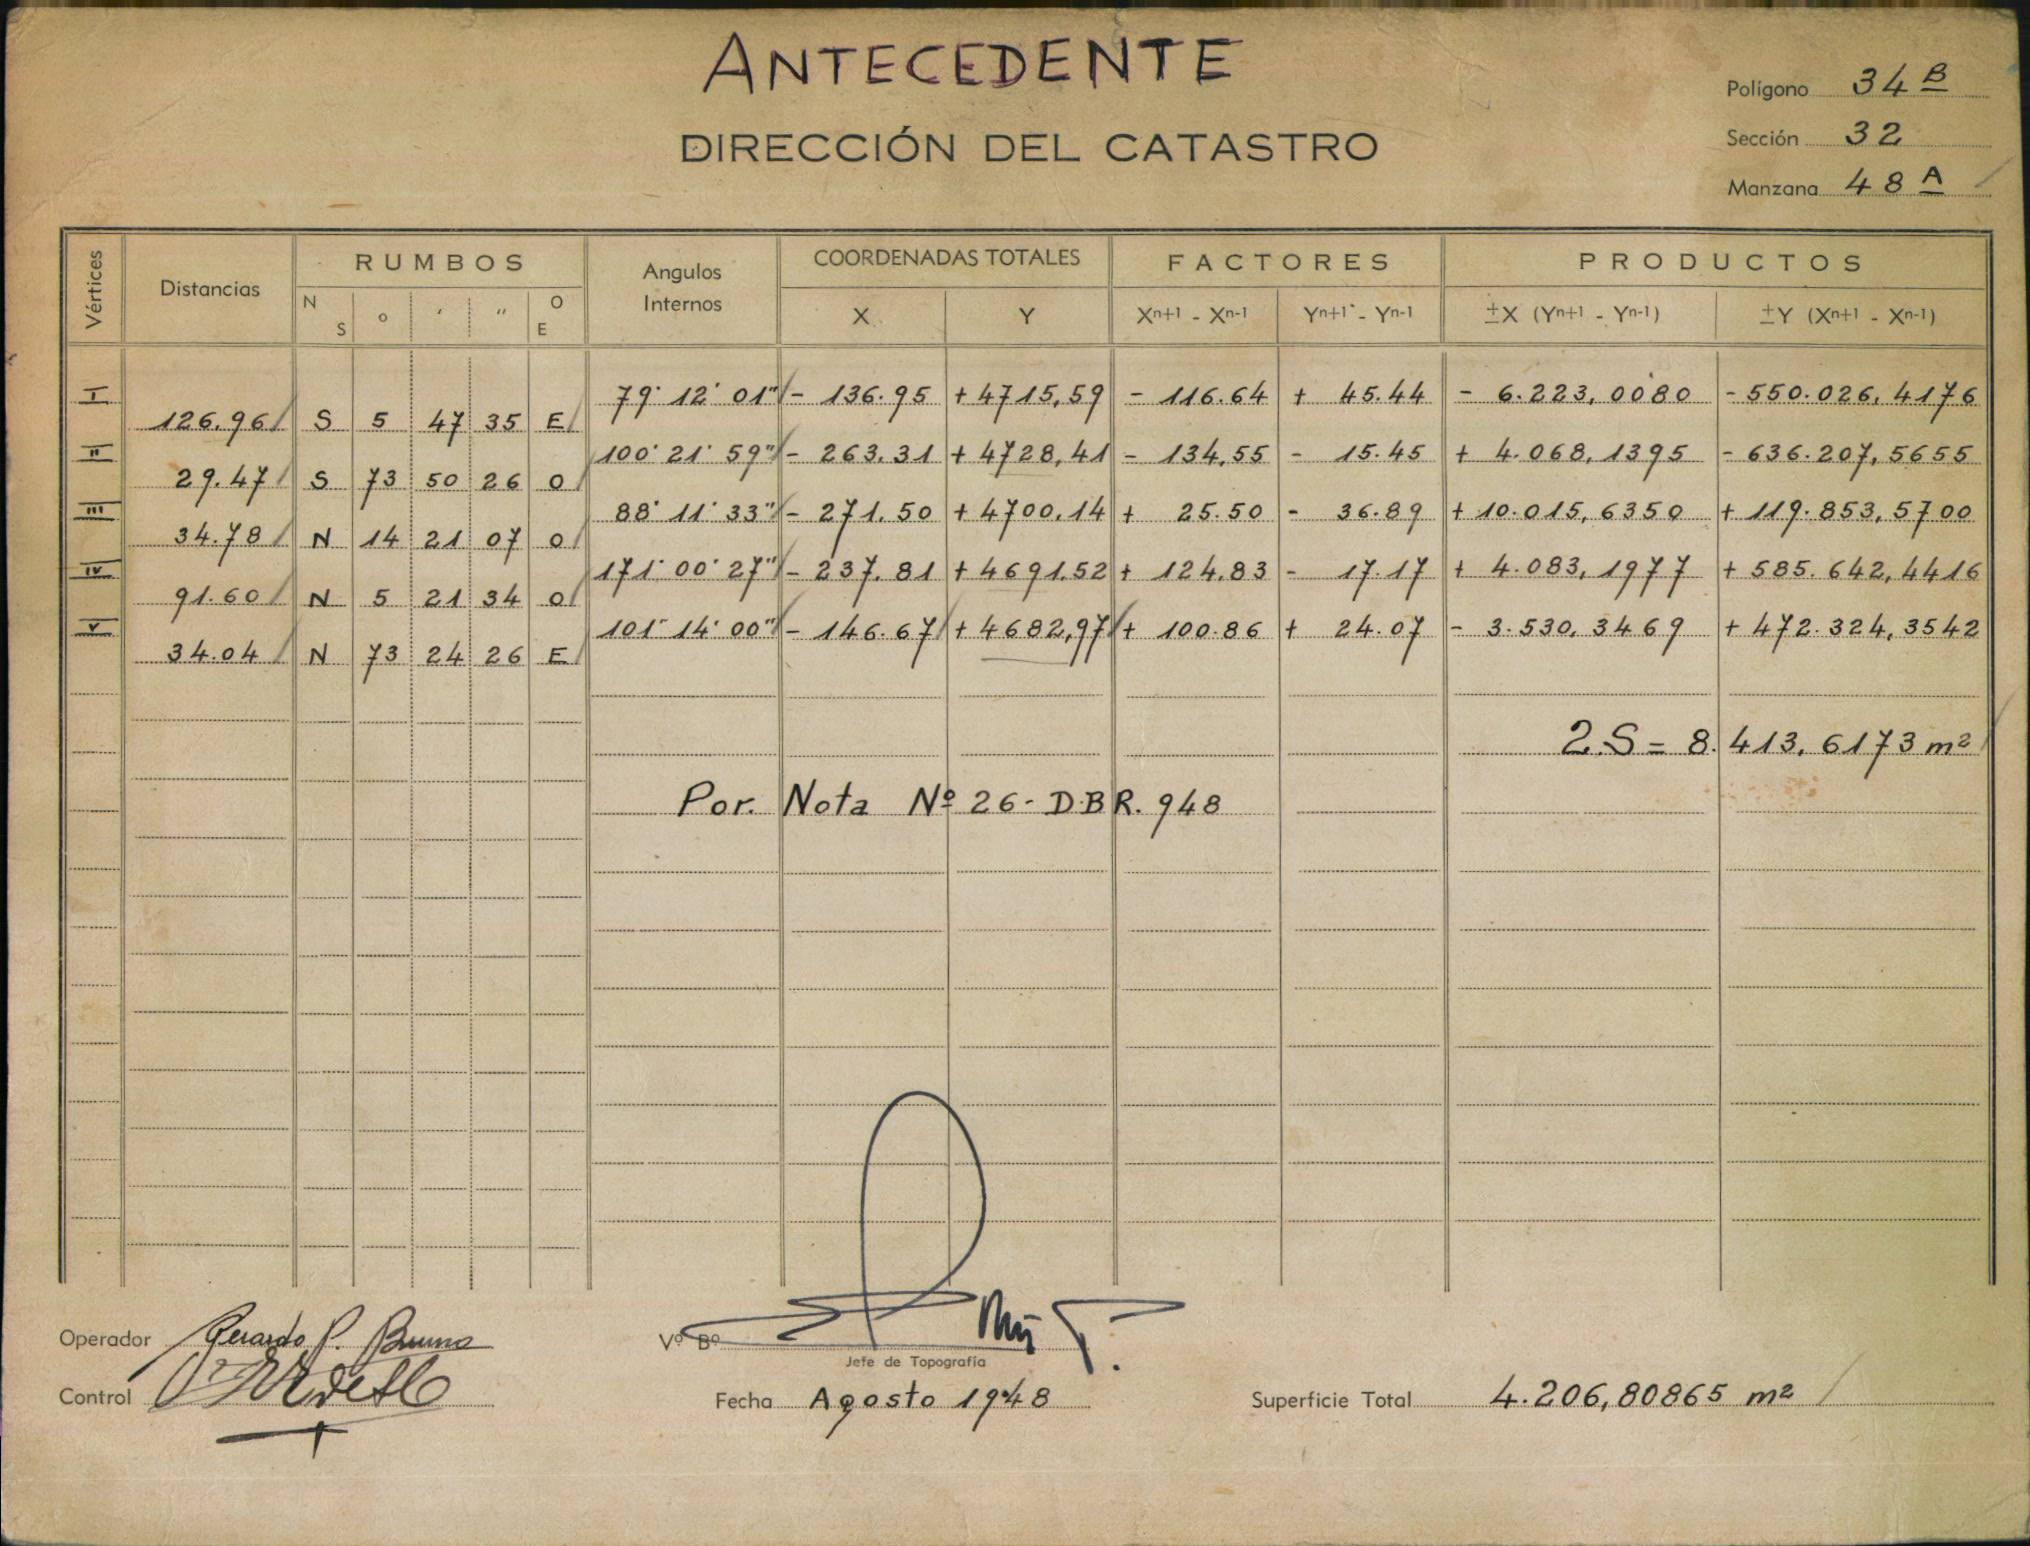 ANTECEDENTE
DIRECCIÓN DEL CATASTRO
Polígono 34 B
Sección 32
Manzana 48 A
Vértices Distancias RUMBOS Angulos Internos COORDENADAS TOTALES FACTORES PRODUCTOS
N S o ' " O E X Y Xn+1 - Xn-1 Yn+1 - Yn-1 ±X (Yn+1 - Yn-1) ±Y (Xn+1 - Xn-1)
I 79° 12' 01" - 136.95 + 4715,59 - 116.64 + 45.44 - 6.223,0080 - 550.026,4176
126.96 S 5 47 35 E
II 100° 21' 59" - 263.31 + 4728,41 - 134,55 - 15.45 + 4.068,1395 - 636.207,5655
29.47 S 73 50 26 O
III 88° 11' 33" - 271.50 + 4700.14 + 25.50 - 36.89 + 10.015,6350 + 119.853,5700
34.78 N 14 21 07 O
IV 171° 00' 27" - 237.81 + 4691.52 + 124.83 - 17.17 + 4.083,1977 + 585.642,4416
91.60 N 5 21 34 O
V 101° 14' 00" - 146.67 + 4682,97 + 100.86 + 24.07 - 3.530,3469 + 472.324,3542
34.04 N 73 24 26 E
2.S = 8.413,6173 m²
Por. Nota Nº 26- D.B R. 948
Operador Gerardo P. Bruno
Vº Bº
Jefe de Topografía
Control
Fecha Agosto 1948
Superficie Total 4.206,80865 m²